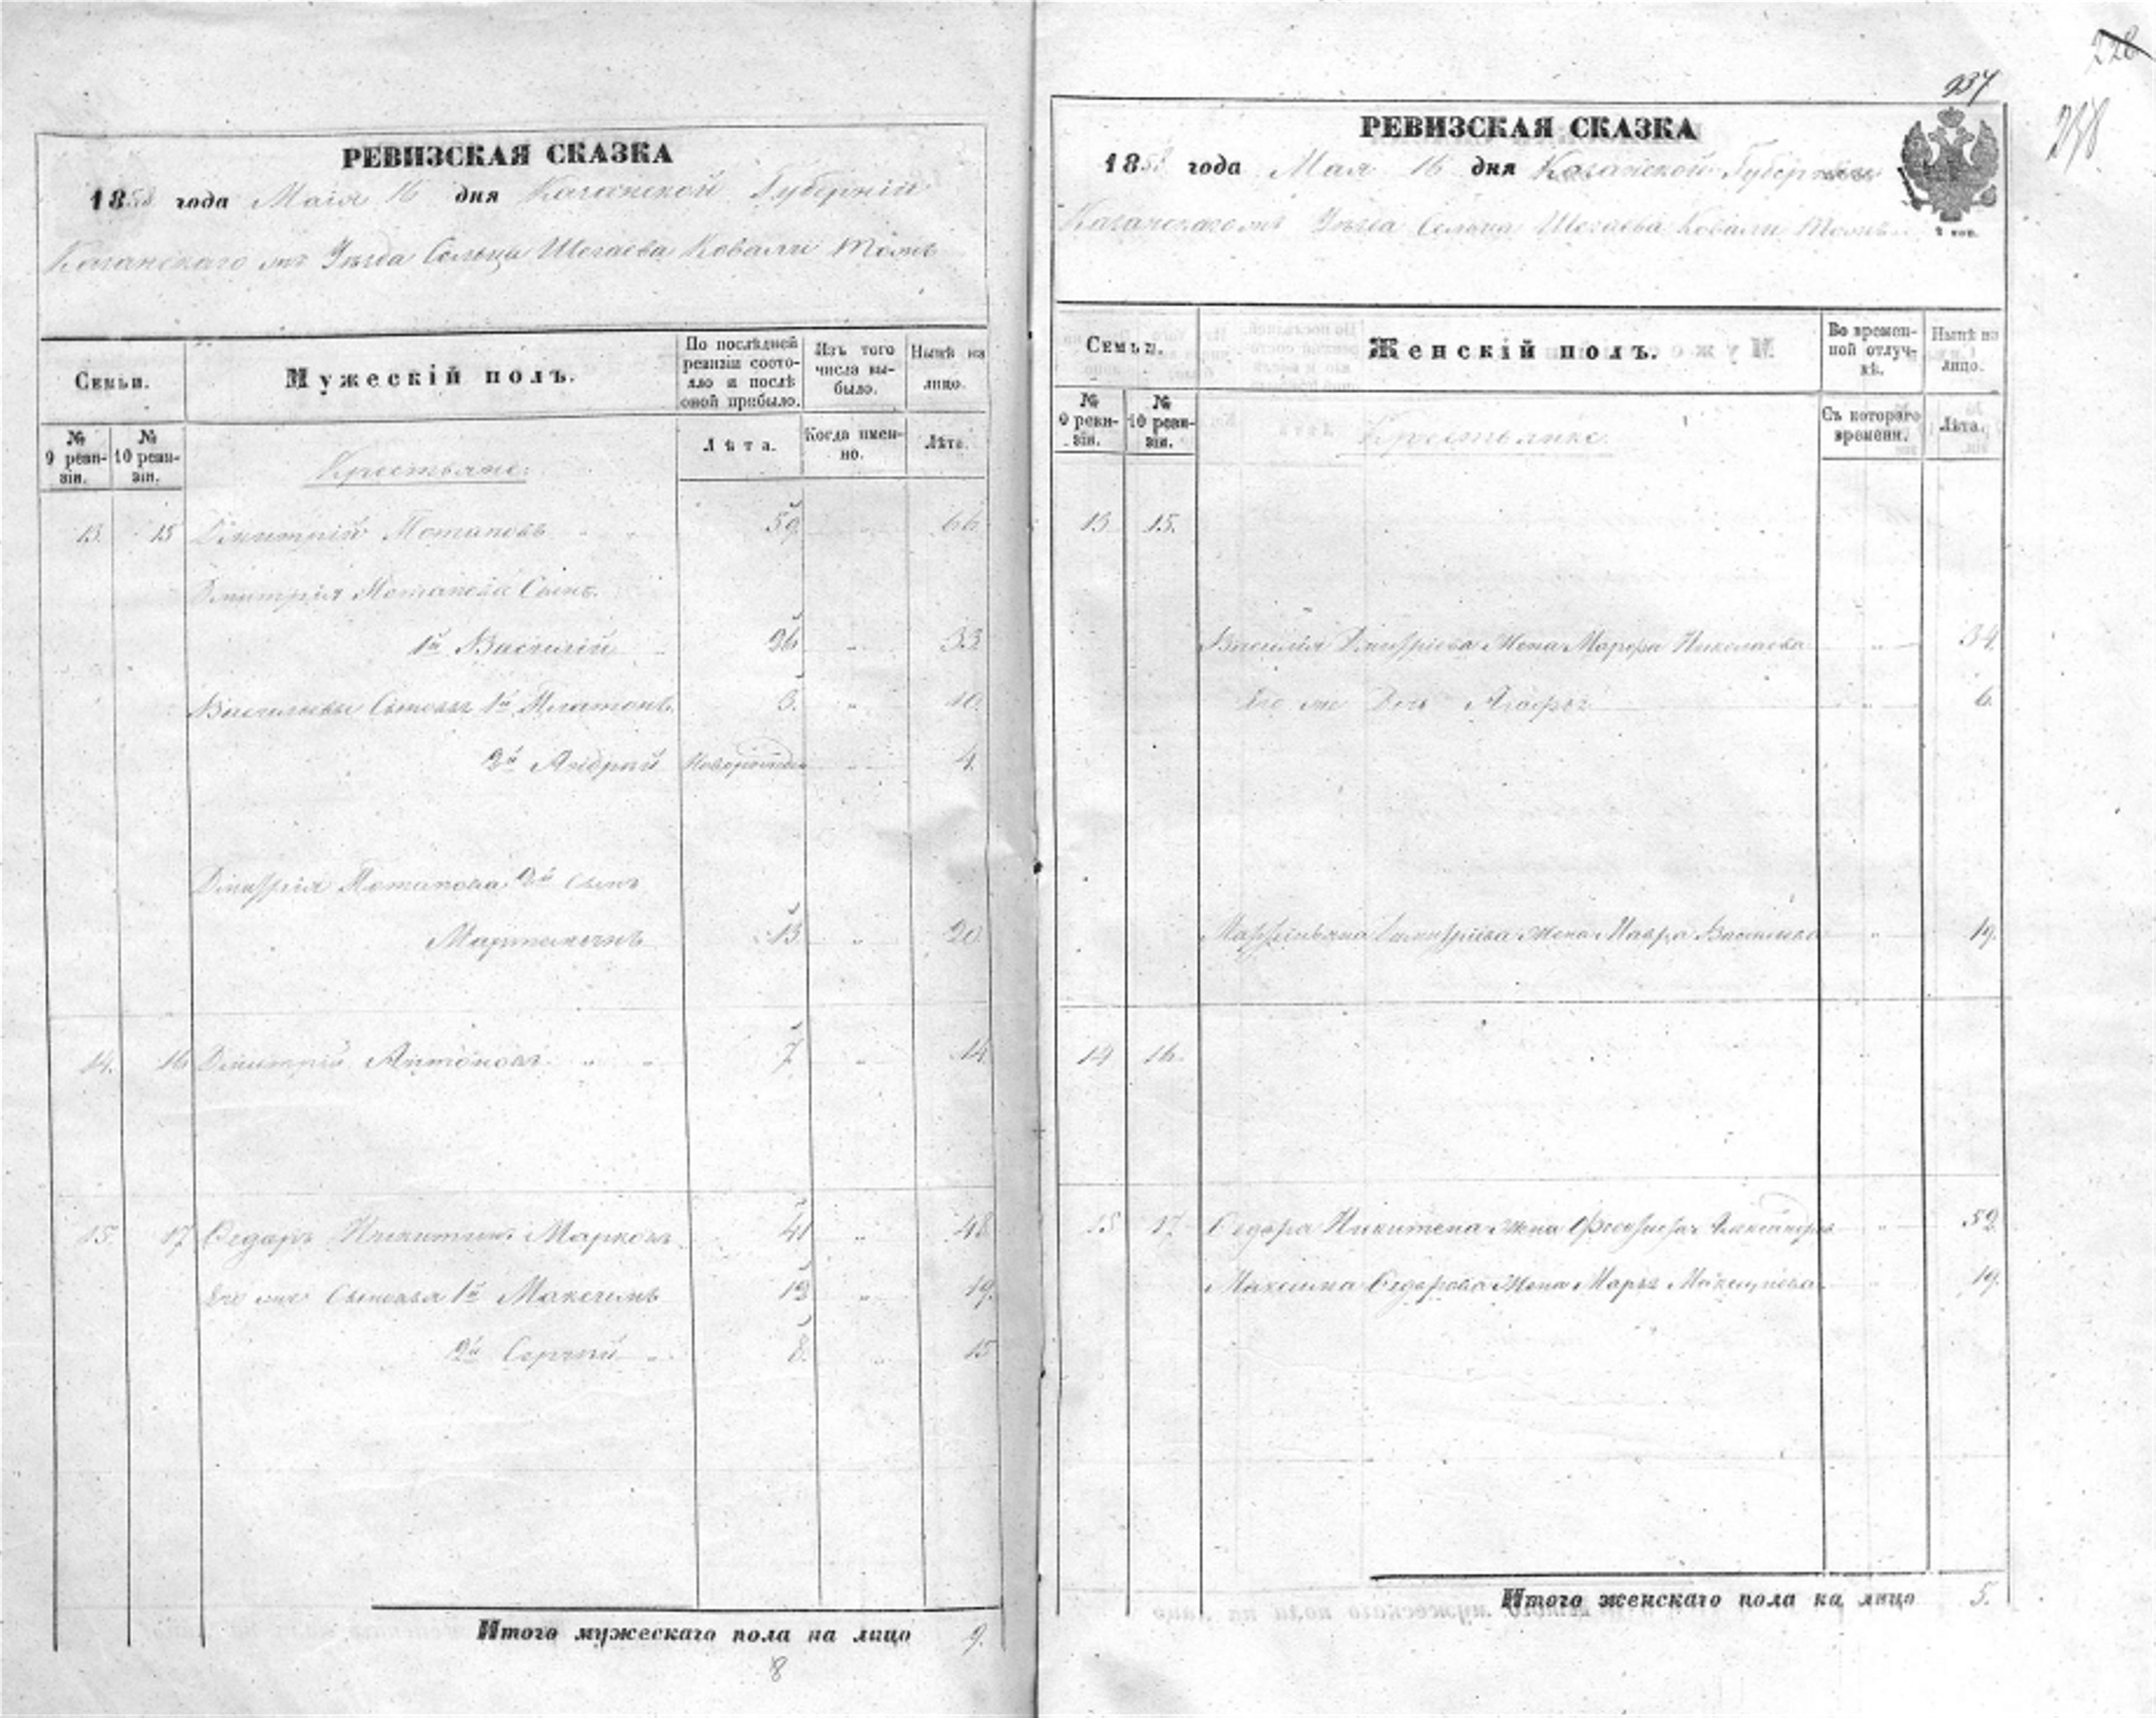 РЕВИЗСКАЯ СКАЗКА
1858 года Маія 16 дня Казанской Губерніи
Казанскаго Уѣзда Сельца Шегаева Ковали тожъ
Семьи.
Мужескій полъ.
По послѣдней ревизіи состояло и послѣ оной прибыло.
Изъ того числа выбыло.
Нынѣ на лицо.
№ 9 ревизіи.
№ 10 ревизіи.
Лѣта.
Когда именно.
Лѣта.
Крестьяне.
13. 15 Дмитрій Потаповъ 59. 66.
Дмитрія Потапова Сынъ
1й Василій 26 33.
Васильевы Сыновья 1й Платонъ 3. 10.
2й Андрей Новорожденъ 4.
Дмитрія Потапова 2й сынъ
Мартемьянъ 13. 20.
14. 16 Дмитрій Антоновъ 7. 14.
15. 17 Ѳедоръ Никитинъ Марковъ 41 48
Его же Сыновья 1й Максимъ 12 19.
2й Сергей 8. 15
Итого мужескаго пола на лицо 9.
8
228
237
238
РЕВИЗСКАЯ СКАЗКА
1858 года Мая 16 дня Казанской Губерніи
Казанскаго Уѣзда Сельца Шегаева Ковали тожъ
Семьи.
Женскій полъ.
Во временной отлучкѣ.
Нынѣ на лицо.
№ 9 ревизіи.
№ 10 ревизіи.
Съ котораго времени.
Лѣта.
Крестьянке.
13 15.
Василія Дмитріева Жена Марфа Николаева 34.
Его же Дочь Агафья 6.
Мартемьяна Дмитріева жена Мавра Васильева 19.
14 16.
15 17 Ѳедора Никитена жена 52.
Максима Ѳедорова Жена Марья 19.
Итого женскаго пола на лицо 5.